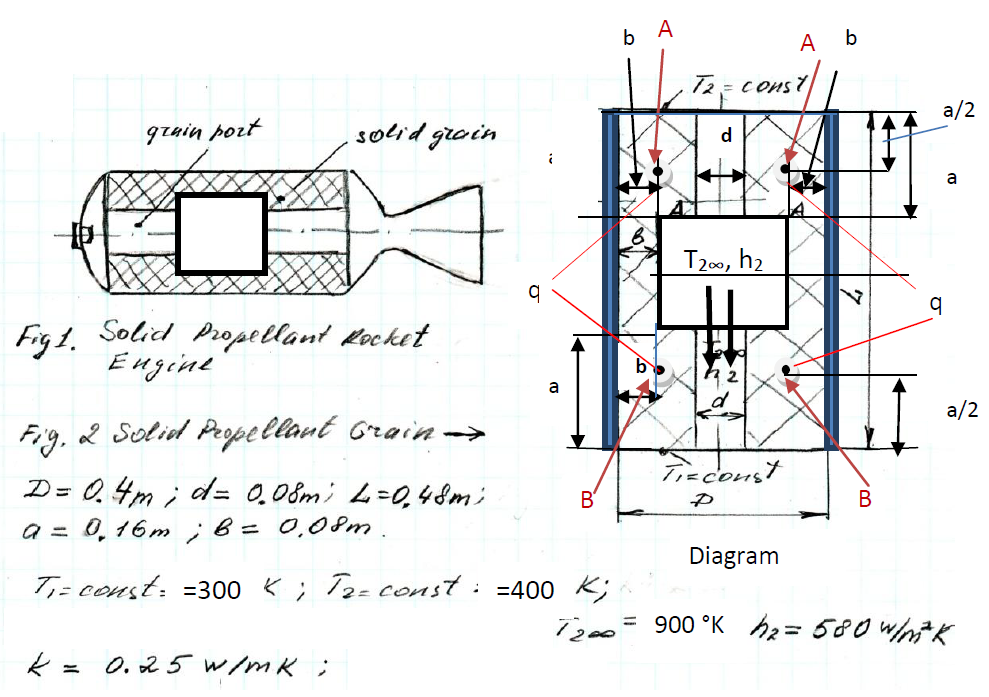 grain port
solid grain
Fig1. Solid Propellant Rocket
Engine
Fig. 2 Solid Propellant Grain →
D = 0.4m ; d = 0.08m; L=0,48m;
a = 0.16m ; b = 0.08m.
T1= const: =300 K ; T2= const : =400 K;
T2∞ = 900 °K h2 = 580 w/m²K
k = 0.25 w/mK ;
b
A
A
b
T2 = const
a/2
d
a
b
b
A
A
b
T2∞, h2
q
L
q
T2∞
h2
b
a
d
a/2
T1=const
B
B
D
Diagram